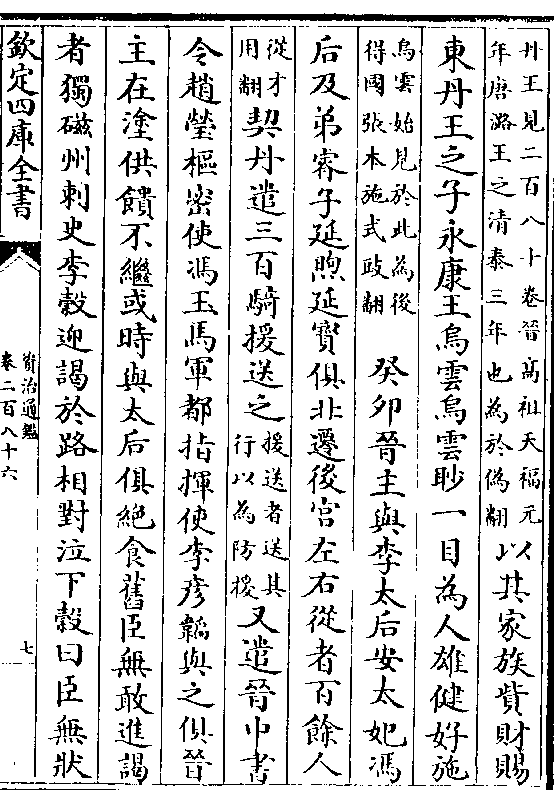 丹王見二百八十卷晉髙祖天福元
年唐潞王之清泰三年也為於偽翻
以其家族貲財賜
東丹王之子永康王烏雲烏雲眇一目為人雄健好施
烏雲始見於此為後
得國張本施式䜴翻
癸卯晉主與李太后安太妃馮
后及弟睿子延煦延寳俱北遷後宫左右從者百餘人
從才
用翻
契丹遣三百騎援送之
援送者送其
行以為防援
又遣晉中書
令趙瑩樞密使馮玉馬軍都指揮使李彦韜與之俱晉
主在塗供饋不繼或時與太后俱絶食舊臣無敢進謁
者獨磁州刺史李榖迎謁於路相對泣下榖曰臣無狀
欽定四庫全書
資治通鑑
卷二百八十六
七